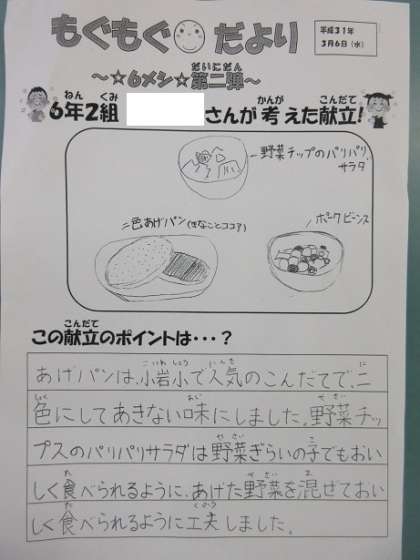 もぐもぐ だより
平成31年
3月6日(水)
～☆6メシ☆第二弾～
6年2組 さんが考えた献立!
野菜チップのパリパリ
サラダ
二色あげパン(きなことココア)
ポークビーンズ
この献立のポイントは・・・?
あげパンは、小岩小で人気のこんだてで、二
色にしてあきない味にしました。野菜チッ
プスのパリパリサラダは野菜ぎらいの子でもおい
しく食べられるように、あげた野菜を混ぜておい
しく食べられるように工夫しました。